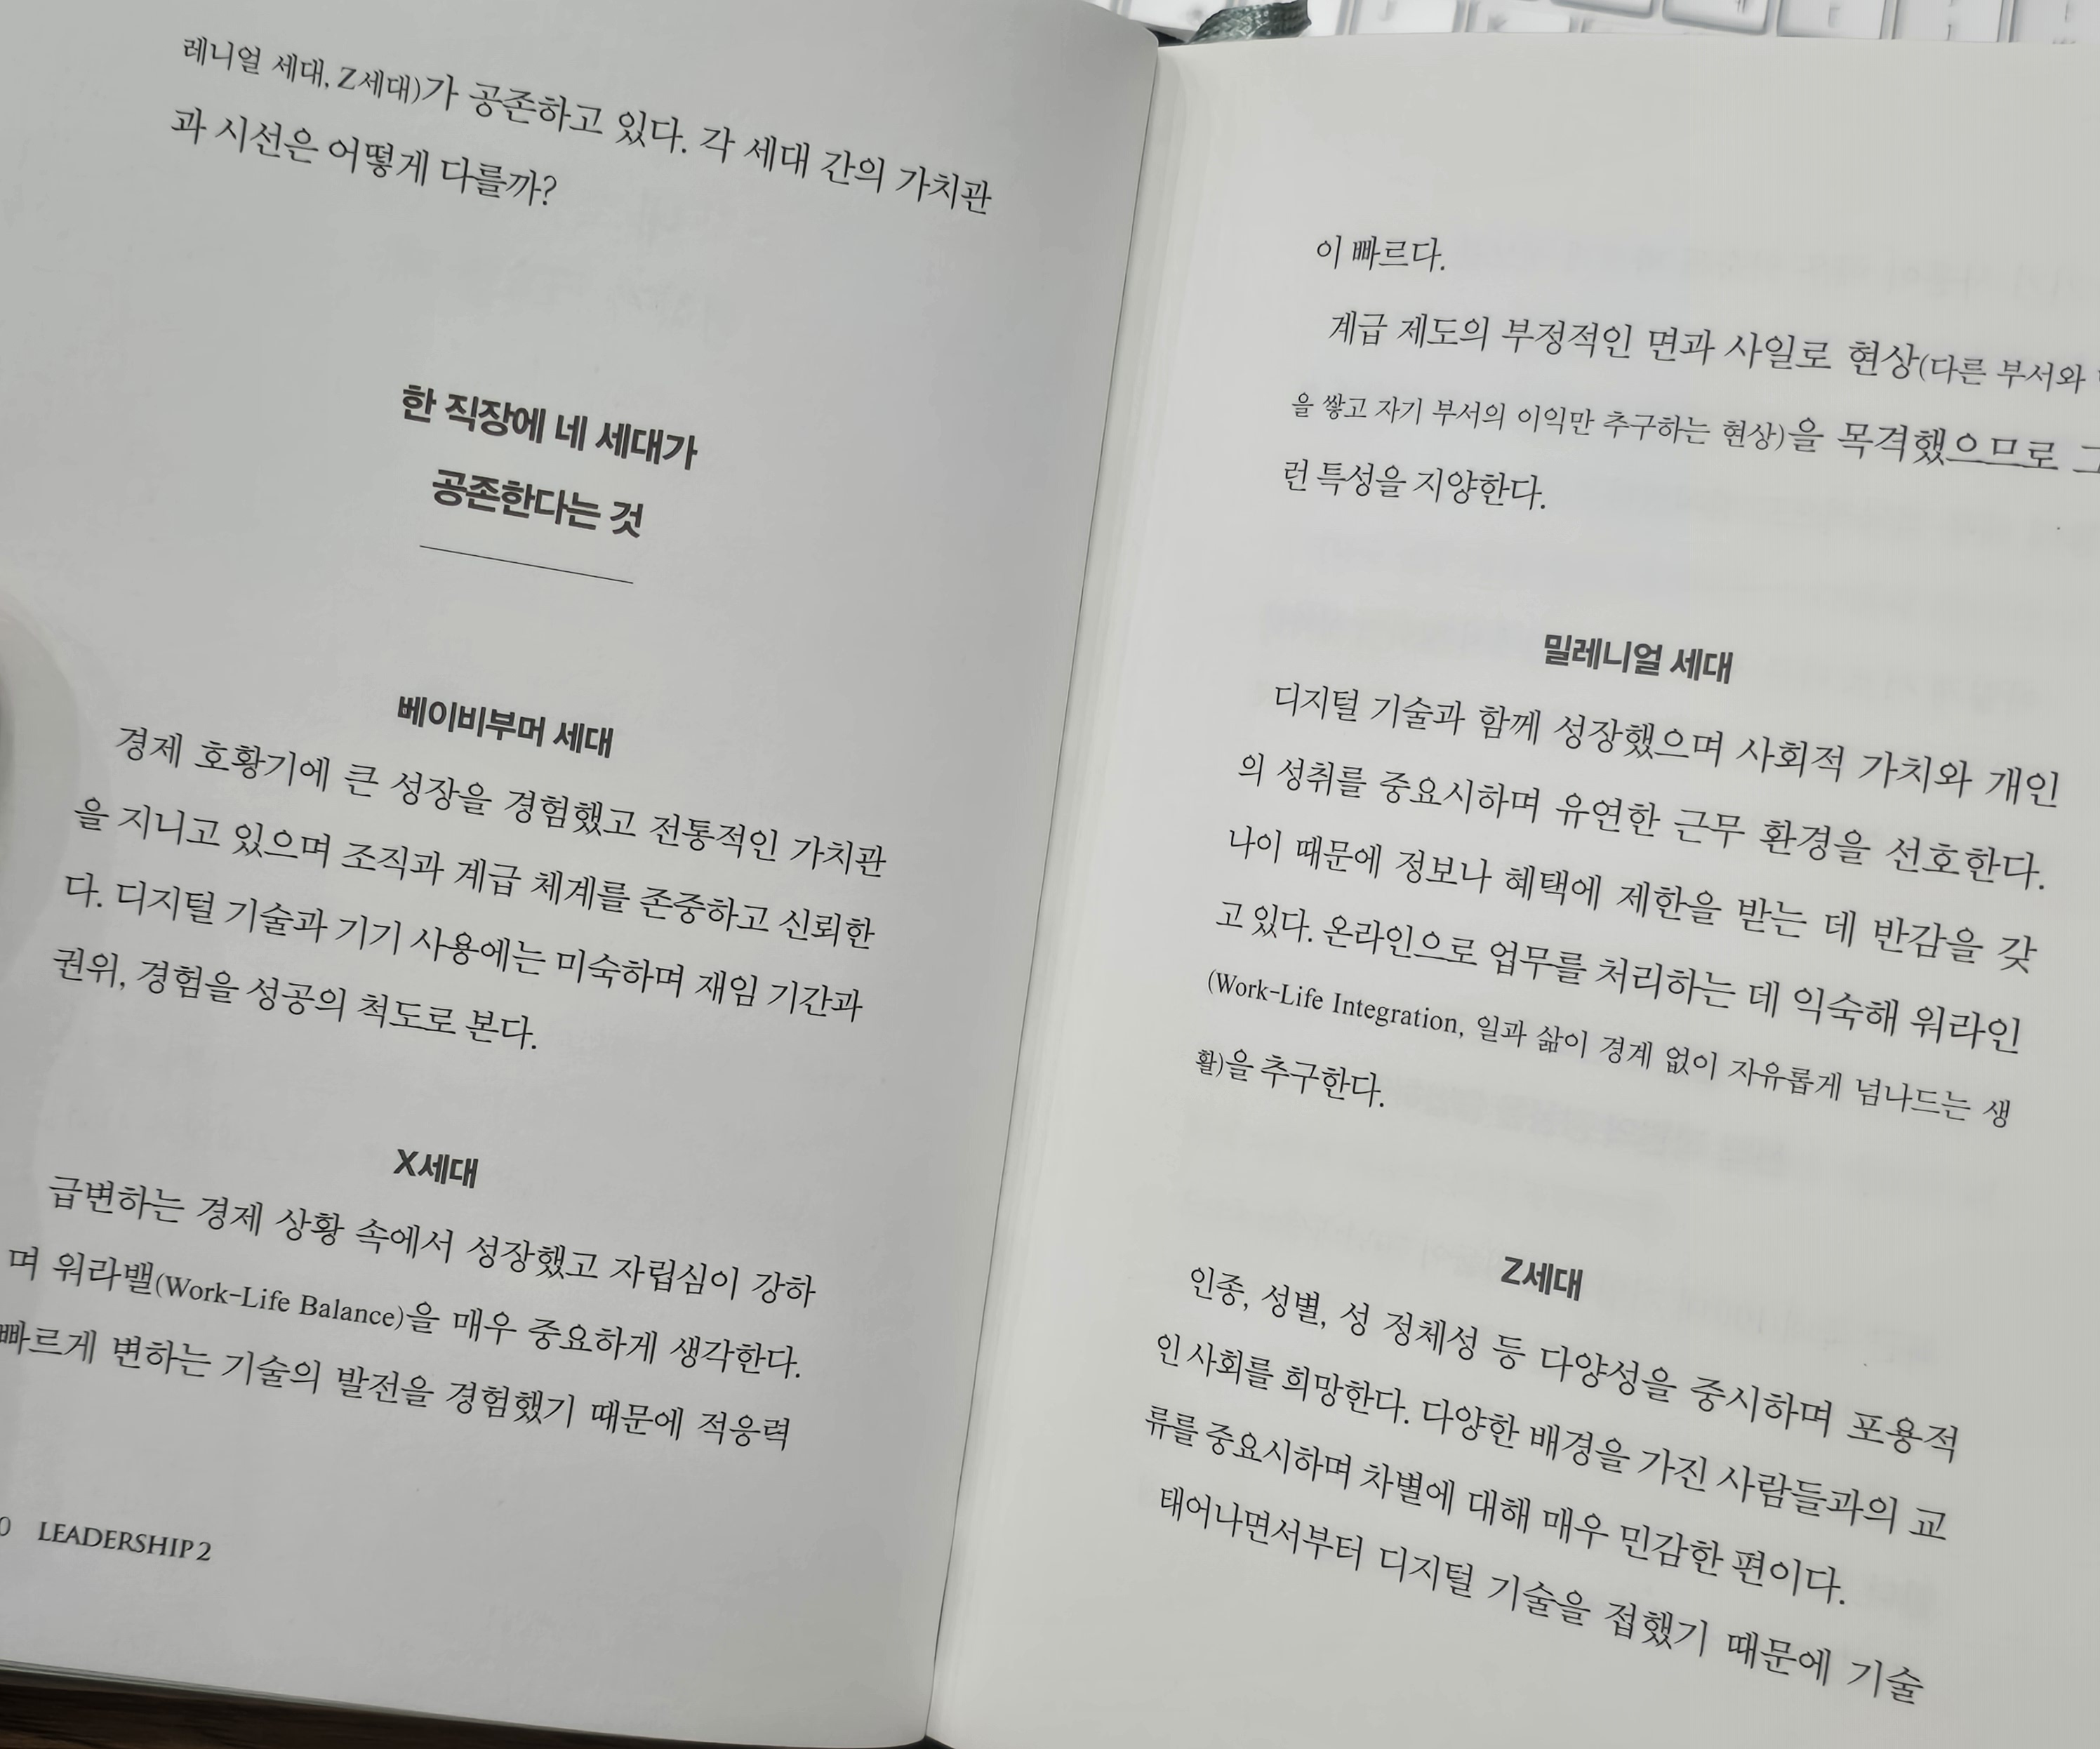 레니얼 세대, Z세대)가 공존하고 있다. 각 세대 간의 가치관
과 시선은 어떻게 다를까?
한 직장에 네 세대가
공존한다는 것
베이비부머 세대
경제 호황기에 큰 성장을 경험했고 전통적인 가치관
을 지니고 있으며 조직과 계급 체계를 존중하고 신뢰한
다. 디지털 기술과 기기 사용에는 미숙하며 재임 기간과
권위, 경험을 성공의 척도로 본다.
X세대
급변하는 경제 상황 속에서 성장했고 자립심이 강하
며 워라밸(Work-Life Balance)을 매우 중요하게 생각한다.
빠르게 변하는 기술의 발전을 경험했기 때문에 적응력
LEADERSHIP 2
이 빠르다.
계급 제도의 부정적인 면과 사일로 현상(다른 부서와
을 쌓고 자기 부서의 이익만 추구하는 현상)을 목격했으므로 그
런 특성을 지양한다.
밀레니얼 세대
디지털 기술과 함께 성장했으며 사회적 가치와 개인
의 성취를 중요시하며 유연한 근무 환경을 선호한다.
나이 때문에 정보나 혜택에 제한을 받는 데 반감을 갖
고 있다. 온라인으로 업무를 처리하는 데 익숙해 워라인
(Work-Life Integration, 일과 삶이 경계 없이 자유롭게 넘나드는 생
활)을 추구한다.
Z세대
인종, 성별, 성 정체성 등 다양성을 중시하며 포용적
인 사회를 희망한다. 다양한 배경을 가진 사람들과의 교
류를 중요시하며 차별에 대해 매우 민감한 편이다.
태어나면서부터 디지털 기술을 접했기 때문에 기술